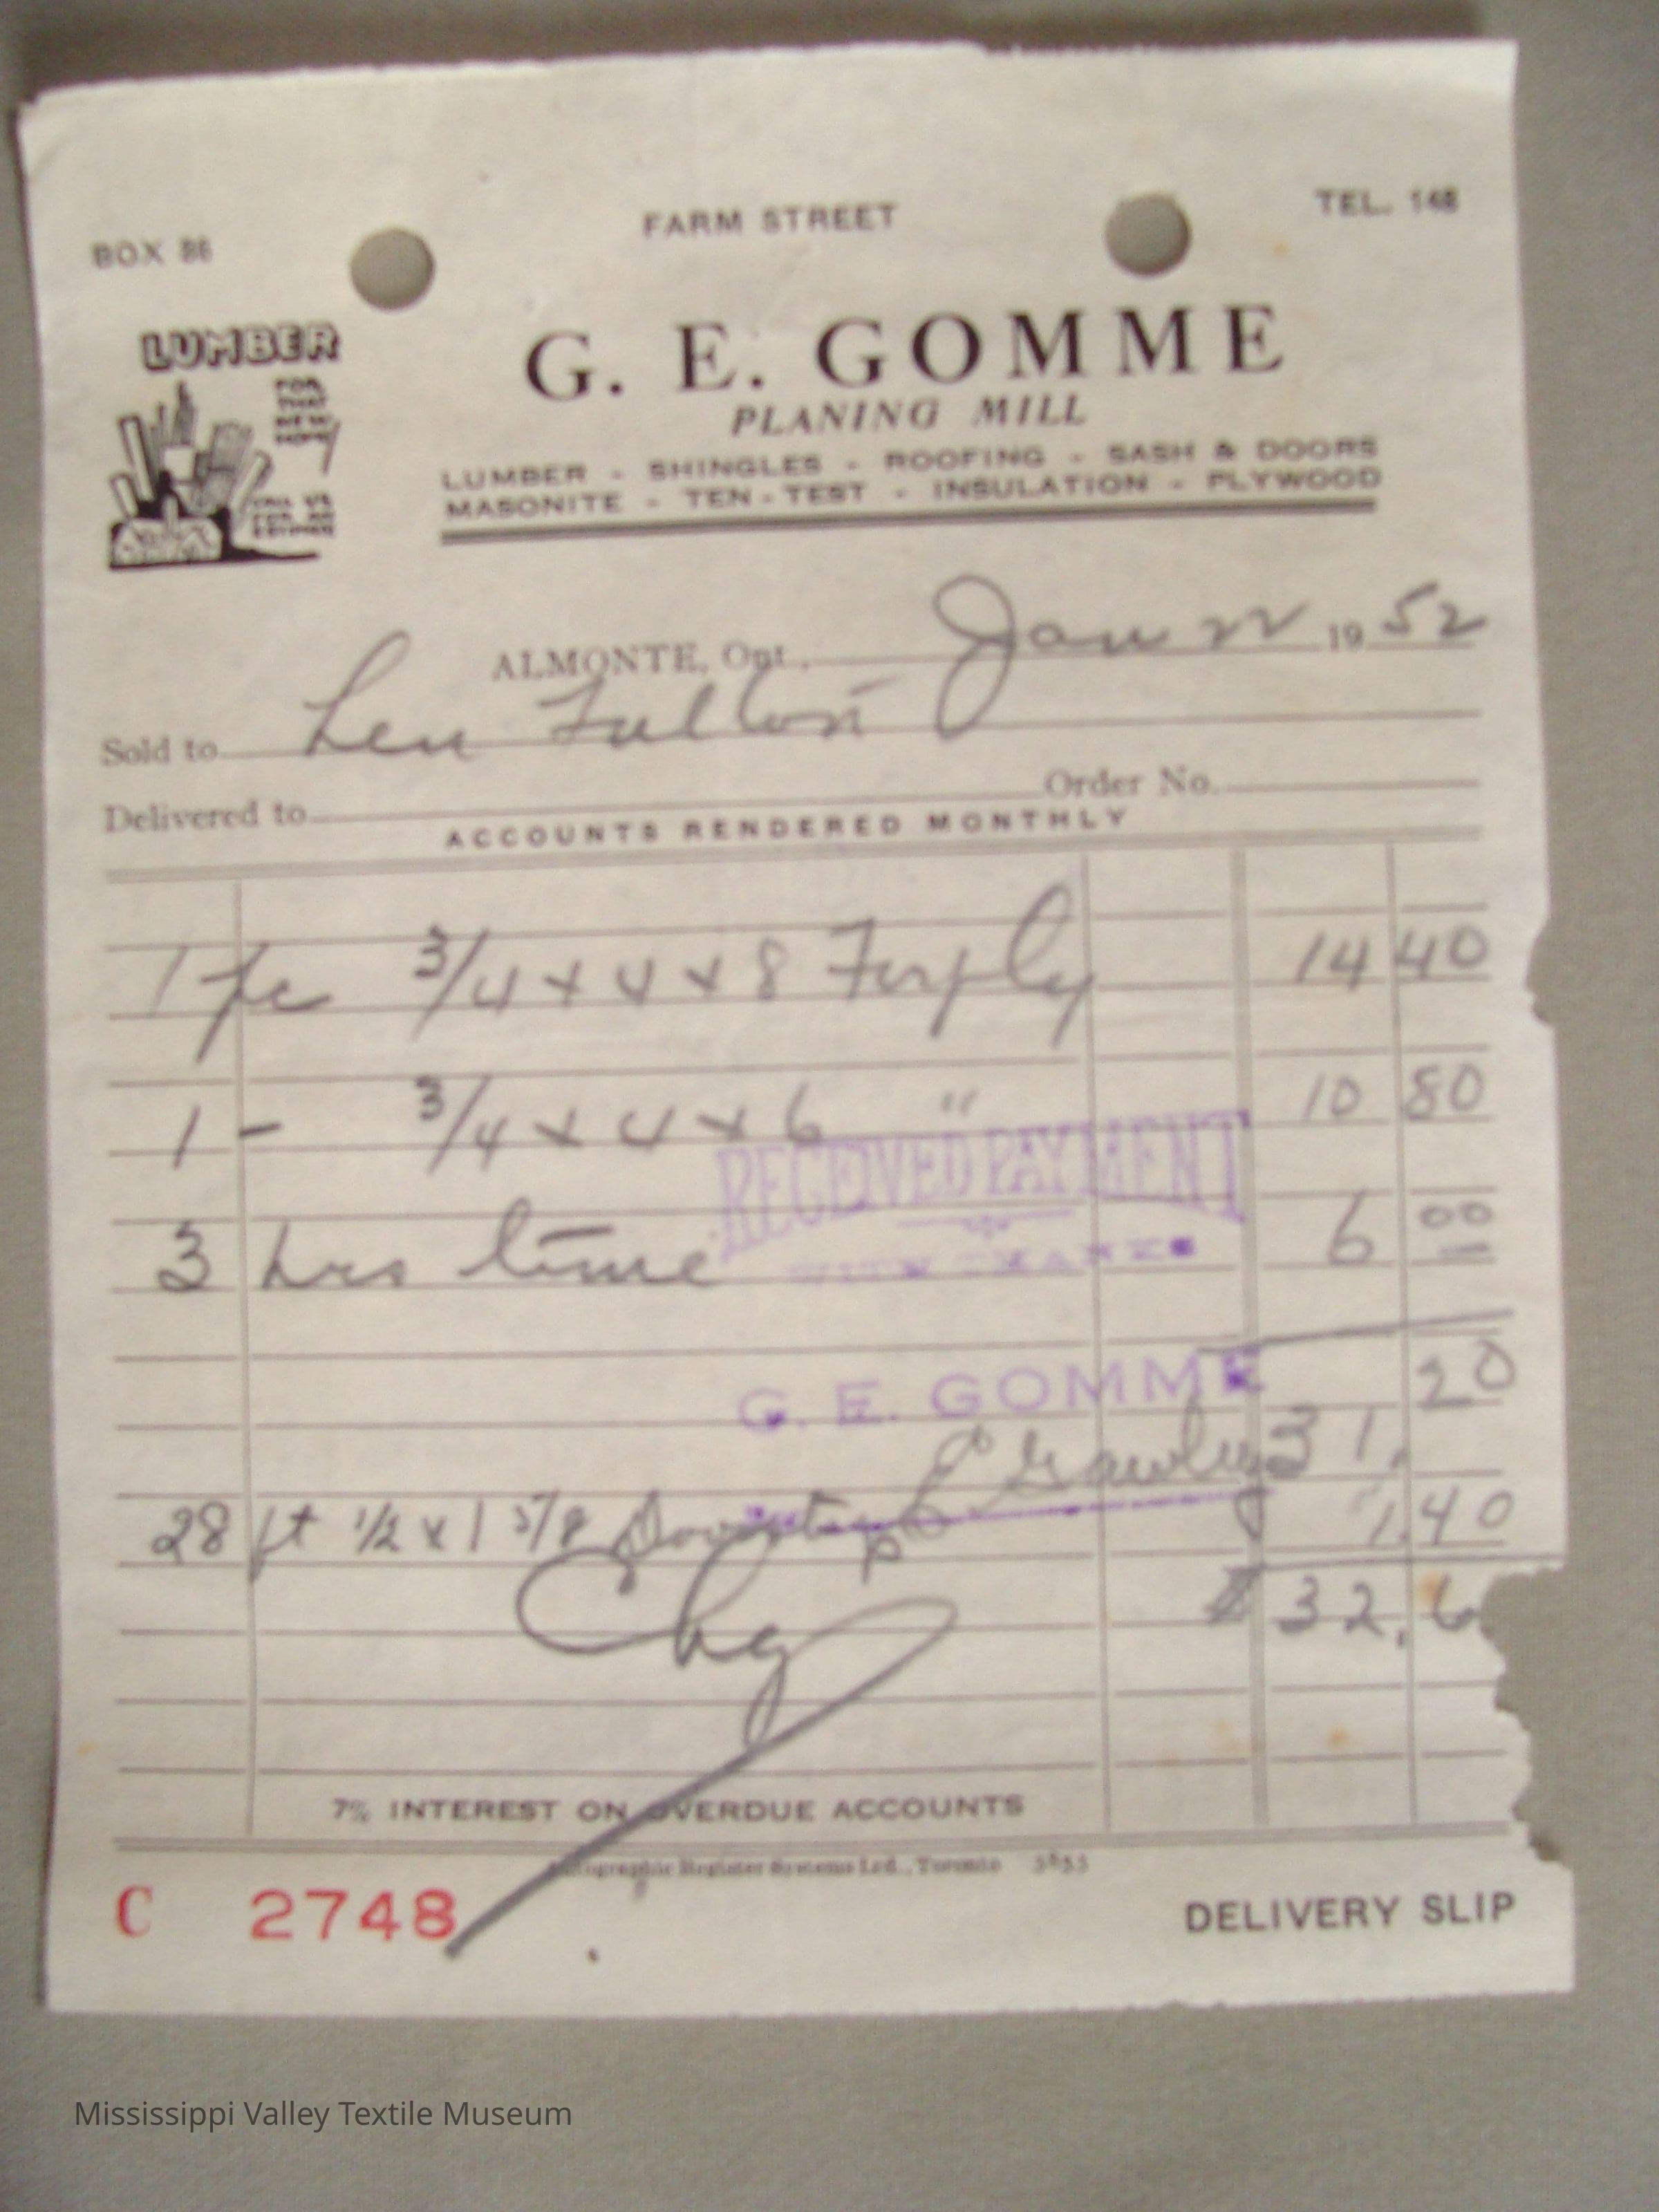 FARM STREET
TEL. 148
BOX 86
LUMBER
FOR
THAT
NEW
HOME
CALL US
FOR AN
ESTIMATE
G. E. GOMME
PLANING MILL
LUMBER - SHINGLES - ROOFING - SASH & DOORS
MASONITE - TEN-TEST - INSULATION - PLYWOOD
ALMONTE, Ont., Jan 22 19 52
Sold to Len Fulton
Delivered to Order No.
ACCOUNTS RENDERED MONTHLY
1 pc 3/4 x 4 x 8 Firply 14 40
1 - 3/4 x 4 x 6 " 10 80
RECEIVED PAYMENT
3 hrs time 6 00
WITH THANKS
20
G. E. GOMME
31.
28 ft 1/2 x 1 5/8 1.40
Chg $ 32.6
7% INTEREST ON OVERDUE ACCOUNTS
Autographic Register Systems Ltd., Toronto
C 2748
DELIVERY SLIP
Mississippi Valley Textile Museum